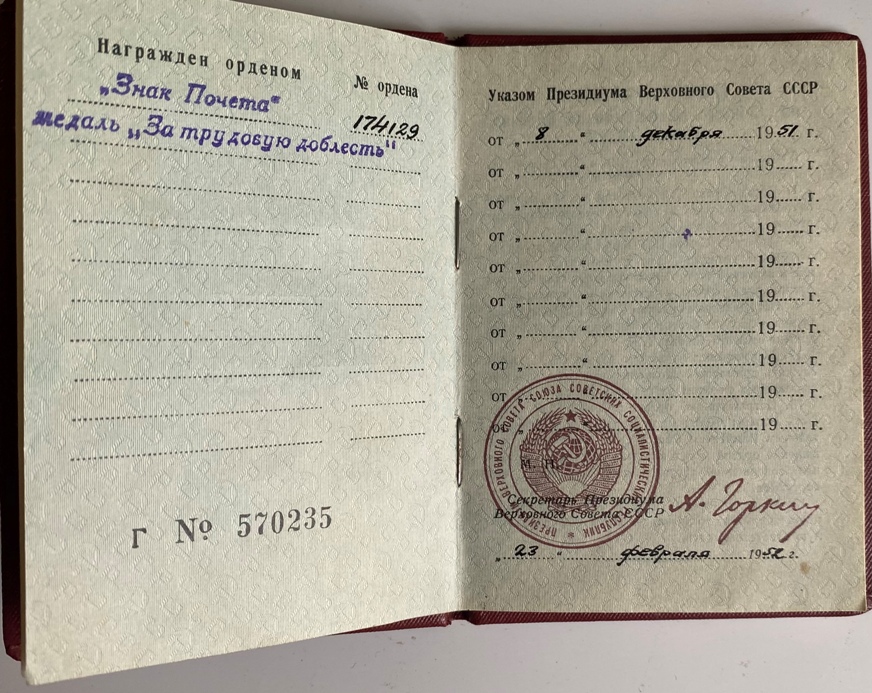 Награжден орденом
№ ордена
„Знак Почета"
174129
медаль „За трудовую доблесть"
Г № 570235
Указом Президиума Верховного Совета СССР
от „ 8 “ декабря 1951 г.
от „ “ 19 г.
от „ “ 19 г.
от „ “ 19 г.
от „ “ 19 г.
от „ “ 19 г.
от „ “ 19 г.
от „ “ 19 г.
от „ “ 19 г.
от „ “ 19 г.
ПРЕЗИДИУМ ВЕРХОВНОГО СОВЕТА СОЮЗА СОВЕТСКИХ СОЦИАЛИСТИЧЕСКИХ РЕСПУБЛИК
М. П.
Секретарь Президиума
Верховного Совета СССР
А. Горкин
„ 23 “ февраля 1952 г.